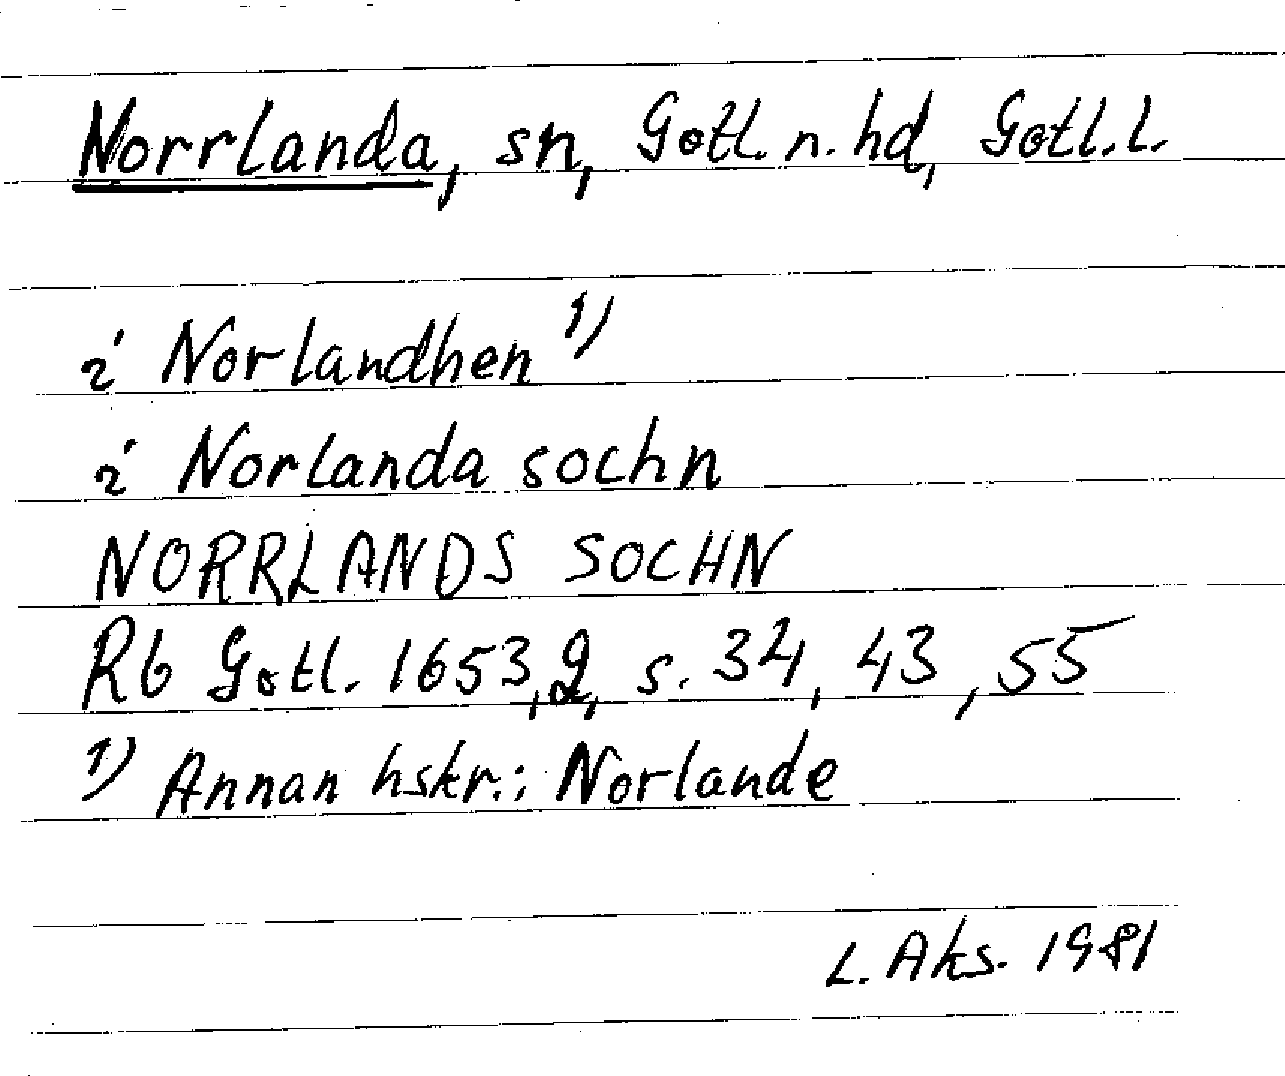 Norrlanda, sn, Gotl. n. hd, Gotl. l.
i Norlandhen 1)
i Norlanda sochn
NORRLANDS SOCHN
Rb Gotl. 1653,2, s. 34, 43, 55
1) Annan hskr.: Norlande
L. Aks. 1981